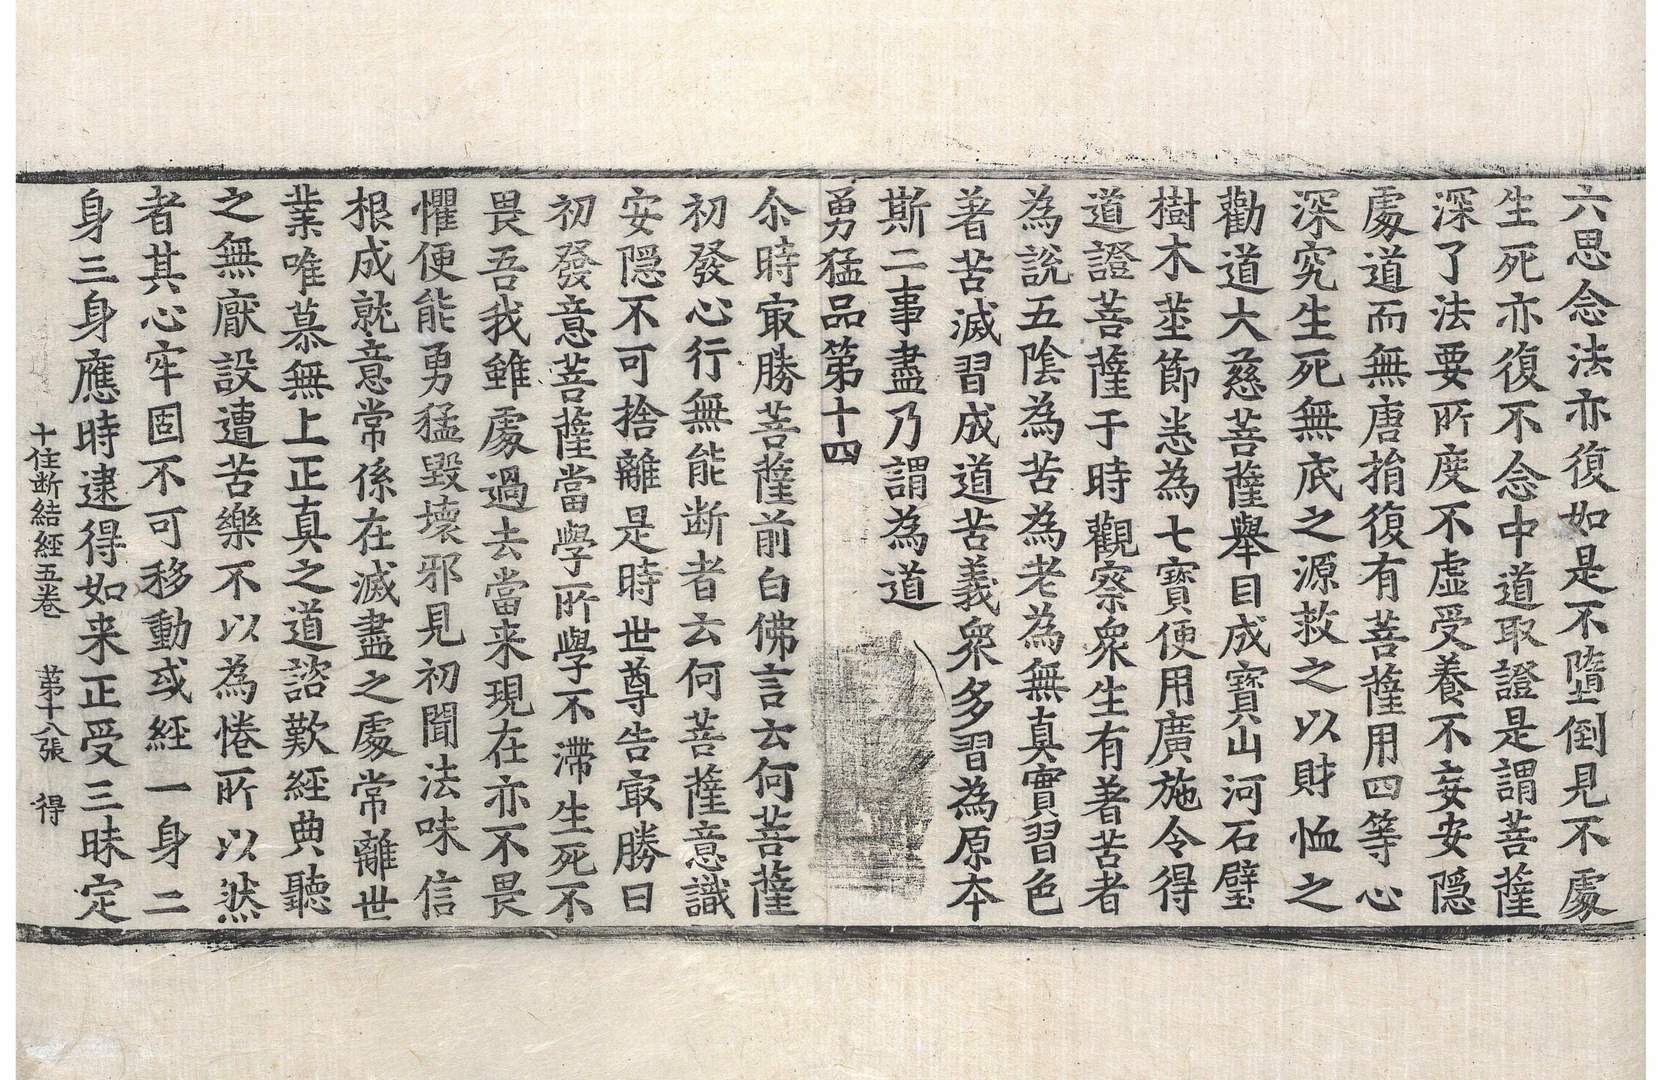 六思念法亦復如是不墮倒見不處
生死亦復不念中道取證是謂菩薩
深了法要所度不虛受養不妄安隱
處道而無唐捐復有菩薩用四等心
深究生死無底之源救之以財恤之
勸道大慈菩薩舉目成寶山河石壁
樹木莖節悉為七寶便用廣施令得
道證菩薩于時觀察衆生有著苦者
為說五陰為苦為老為無真實習色
著苦滅習成道苦義衆多習為原本
斯二事盡乃謂為道
勇猛品第十四
尒時㝡勝菩薩前白佛言云何菩薩
初發心行無能断者云何菩薩意識
安隱不可捨離是時世尊告㝡勝曰
初發意菩薩當學所學不滯生死不
畏吾我雖處過去當来現在亦不畏
懼便能勇猛毀壞邪見初聞法味信
根成就意常係在滅盡之處常離世
業唯慕無上正真之道諮歎經典聽
之無厭設遭苦樂不以為惓所以然
者其心牢固不可移動或經一身二
身三身應時逮得如来正受三昧定
十住断結經五卷 第十八張 得